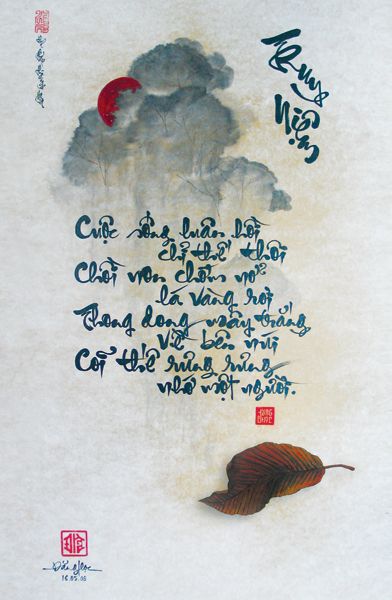 Truy
Niệm
Cuộc sống luân hồi
chỉ thế thôi
Chồi non chớm nở
lá vàng rơi
Thong dong mây trắng
về bên núi
Cõi thế rưng rưng
nhớ một người.
16.05.06